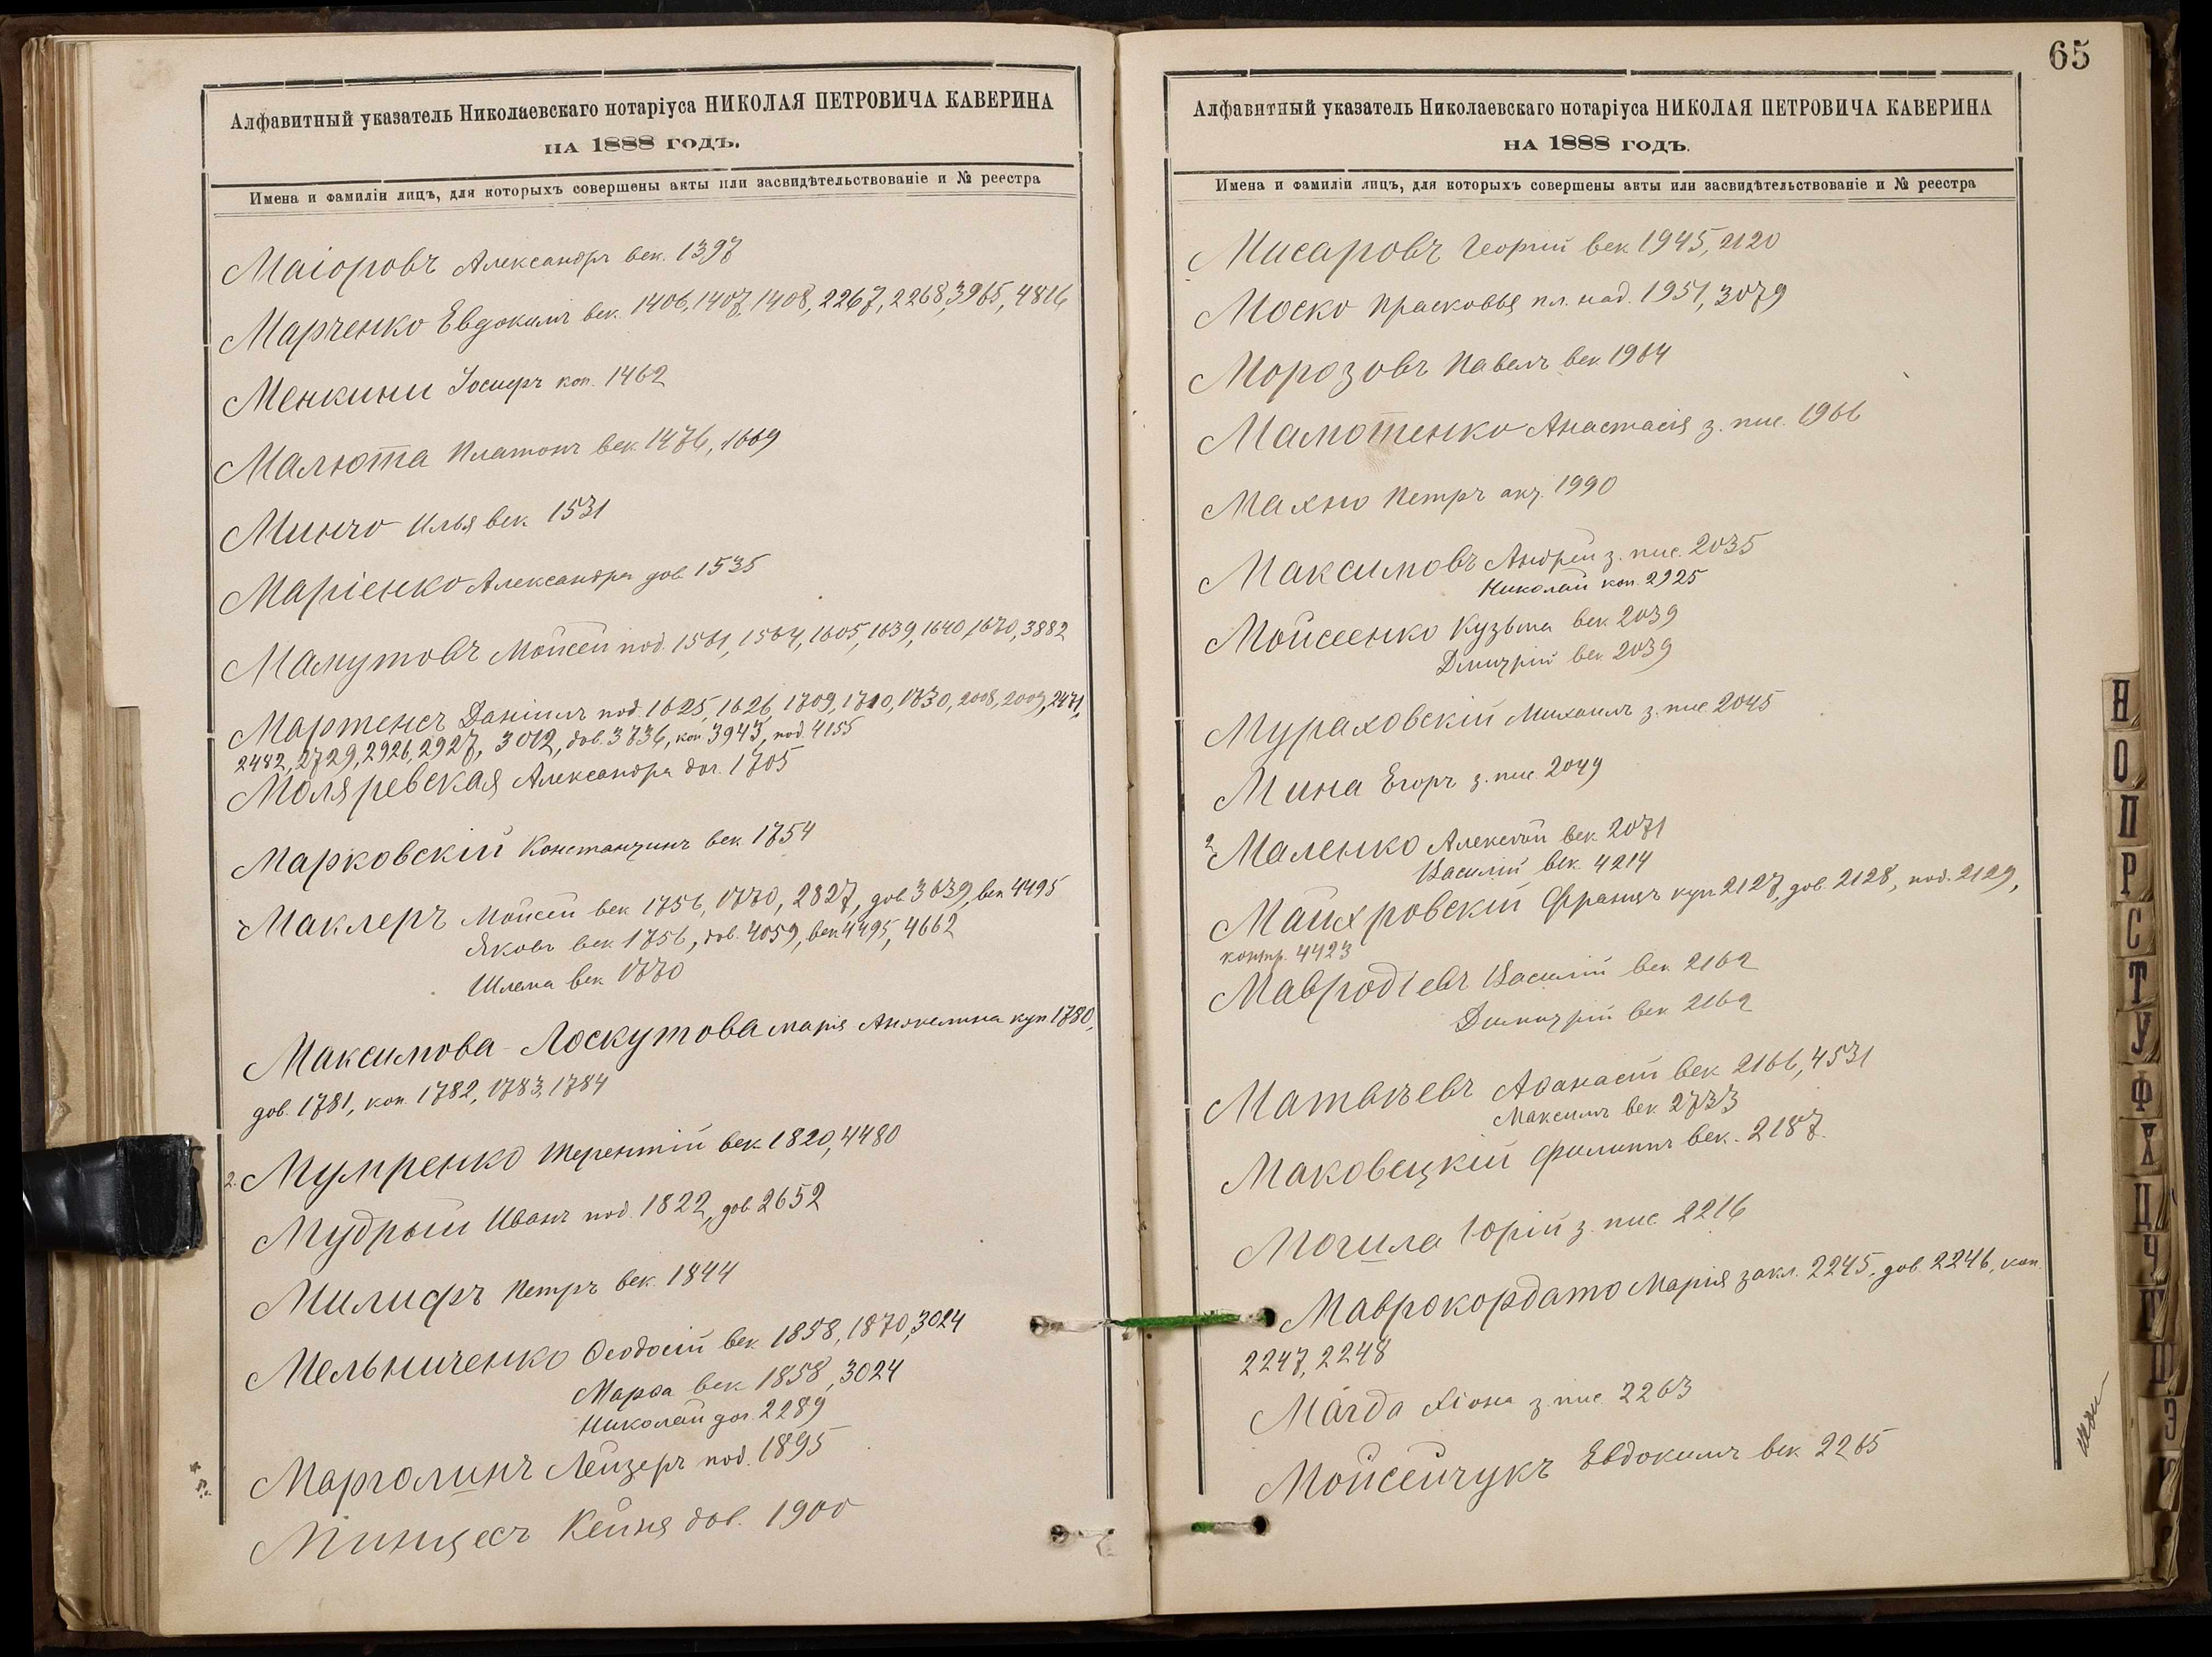 Алфавитный указатель Николаевскаго нотаріуса НИКОЛАЯ ПЕТРОВИЧА КАВЕРИНА
НА 1888 ГОДЪ.
Имена и фамиліи лицъ, для которыхъ совершены акты или засвидѣтельствованіе и № реестра
Маіоровъ Александръ век. 1397
Марченко Евдокимъ век. 1406, 1407, 1408, 2267, 2268, 3965, 4816
Менкини Іосифъ коп. 1462
Малюта Платонъ век. 1476, 1669
Минчо Илья век. 1531
Маріенко Александра дов. 1535
Мамутовъ Мойсей под. 1561, 1564, 1605, 1639, 1640, 1670, 3882
Мартенсъ Даніилъ под. 1625, 1626, 1709, 1710, 1730, 2008, 2009, 2471,
2482, 2729, 2926, 2927, 3012, дов. 3736, коп. 3943, под. 4155
Моляревская Александра дог. 1705
Марковскій Константинъ век. 1754
Маклеръ Мойсей век. 1756, 1770, 2827, дов. 3639, век. 4495
Яковъ век. 1756, дов. 4059, век. 4495, 4662
Шлема век. 1770
Максимова-Лоскутова Марія куп. 1780,
дов. 1781, коп. 1782, 1783, 1784
2. Мумренко Терентій век. 1820, 4480
Мудрый Иванъ под. 1822, дов. 2652
Милифъ Петръ век. 1844
Мельниченко Ѳеодосій век. 1858, 1870, 3024
Марѳа век. 1858, 3024
Николай дог. 2289
Марголинъ Лейзеръ под. 1895
Минцесъ Кейня дов. 1900
65
Алфавитный указатель Николаевскаго нотаріуса НИКОЛАЯ ПЕТРОВИЧА КАВЕРИНА
НА 1888 ГОДЪ.
Имена и фамиліи лицъ, для которыхъ совершены акты или засвидѣтельствованіе и № реестра
Мисаровъ Георгій век. 1945, 2120
Моско Прасковья пл. над. 1951, 3079
Морозовъ Павелъ век. 1964
Мамотенко Анастасія з. пис. 1966
Махно Петръ акт. 1990
Максимовъ Андрей з. пис. 2035
Николай коп. 2925
Мойсеенко Кузьма век. 2039
Дмитрій век. 2039
Мураховскій Михаилъ з. пис. 2045
Мина Егоръ з. пис. 2049
2 Маленко Алексѣй век. 2071
Василій век. 4214
Майхровскій Францъ куп. 2127, дов. 2128, под. 2129,
контр. 4423
Мавродіевъ Василій век. 2162
Димитрій век. 2162
Матвѣевъ Аѳанасій век. 2166, 4531
Максимъ век. 2733
Маковецкій Филиппъ век. 2187.
Могила Юрій з. пис. 2216
Маврокордато Марія закл. 2245, дов. 2246, коп.
2247, 2248
Магда Ліона з. пис. 2263
Мойсейчукъ Евдокимъ век. 2265
Н
О
П
Р
С
Т
У
Ф
Х
Ц
Ч